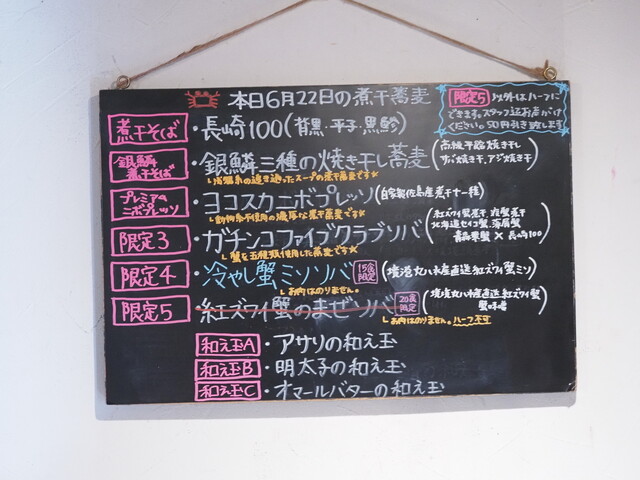 本日6月22日の煮干蕎麦
限定5 以外はハーフに
できます。スタッフ迄お声がけ
ください。50円引き致します
煮干そば ・長崎100(背黒・平子・黒鯵)
銀鱗煮干そば ・銀鱗三種の焼き干し蕎麦 (高級平舘焼き干し サバ焼き干、アジ焼き干)
透き通ったスープの煮干蕎麦です☆
プレミアムニボプレッソ ・ヨコスカニボプレッソ (自家製佐島産煮干し一種)
動物系不使用の濃厚な煮干蕎麦です☆
限定3 ・ガチンコファイブクラブソバ (紅ズワイ蟹煮干、班蟹煮干 北海道セイコ蟹、渡居蟹 青森栗蟹 × 長崎100)
蟹を五種類使用した蕎麦です☆
限定4 ・冷やし蟹ミソソバ 15食限定 (境港丸ハ水産直送紅ズワイ蟹ミソ)
お肉はのりません。
限定5 ・紅ズワイ蟹のまぜソバ 20食限定 (境港丸ハ水産直送紅ズワイ蟹 蟹味噌)
お肉はのりません。ハーフ不可
和え玉A ・アサリの和え玉
和え玉B ・明太子の和え玉
和え玉C ・オマールバターの和え玉